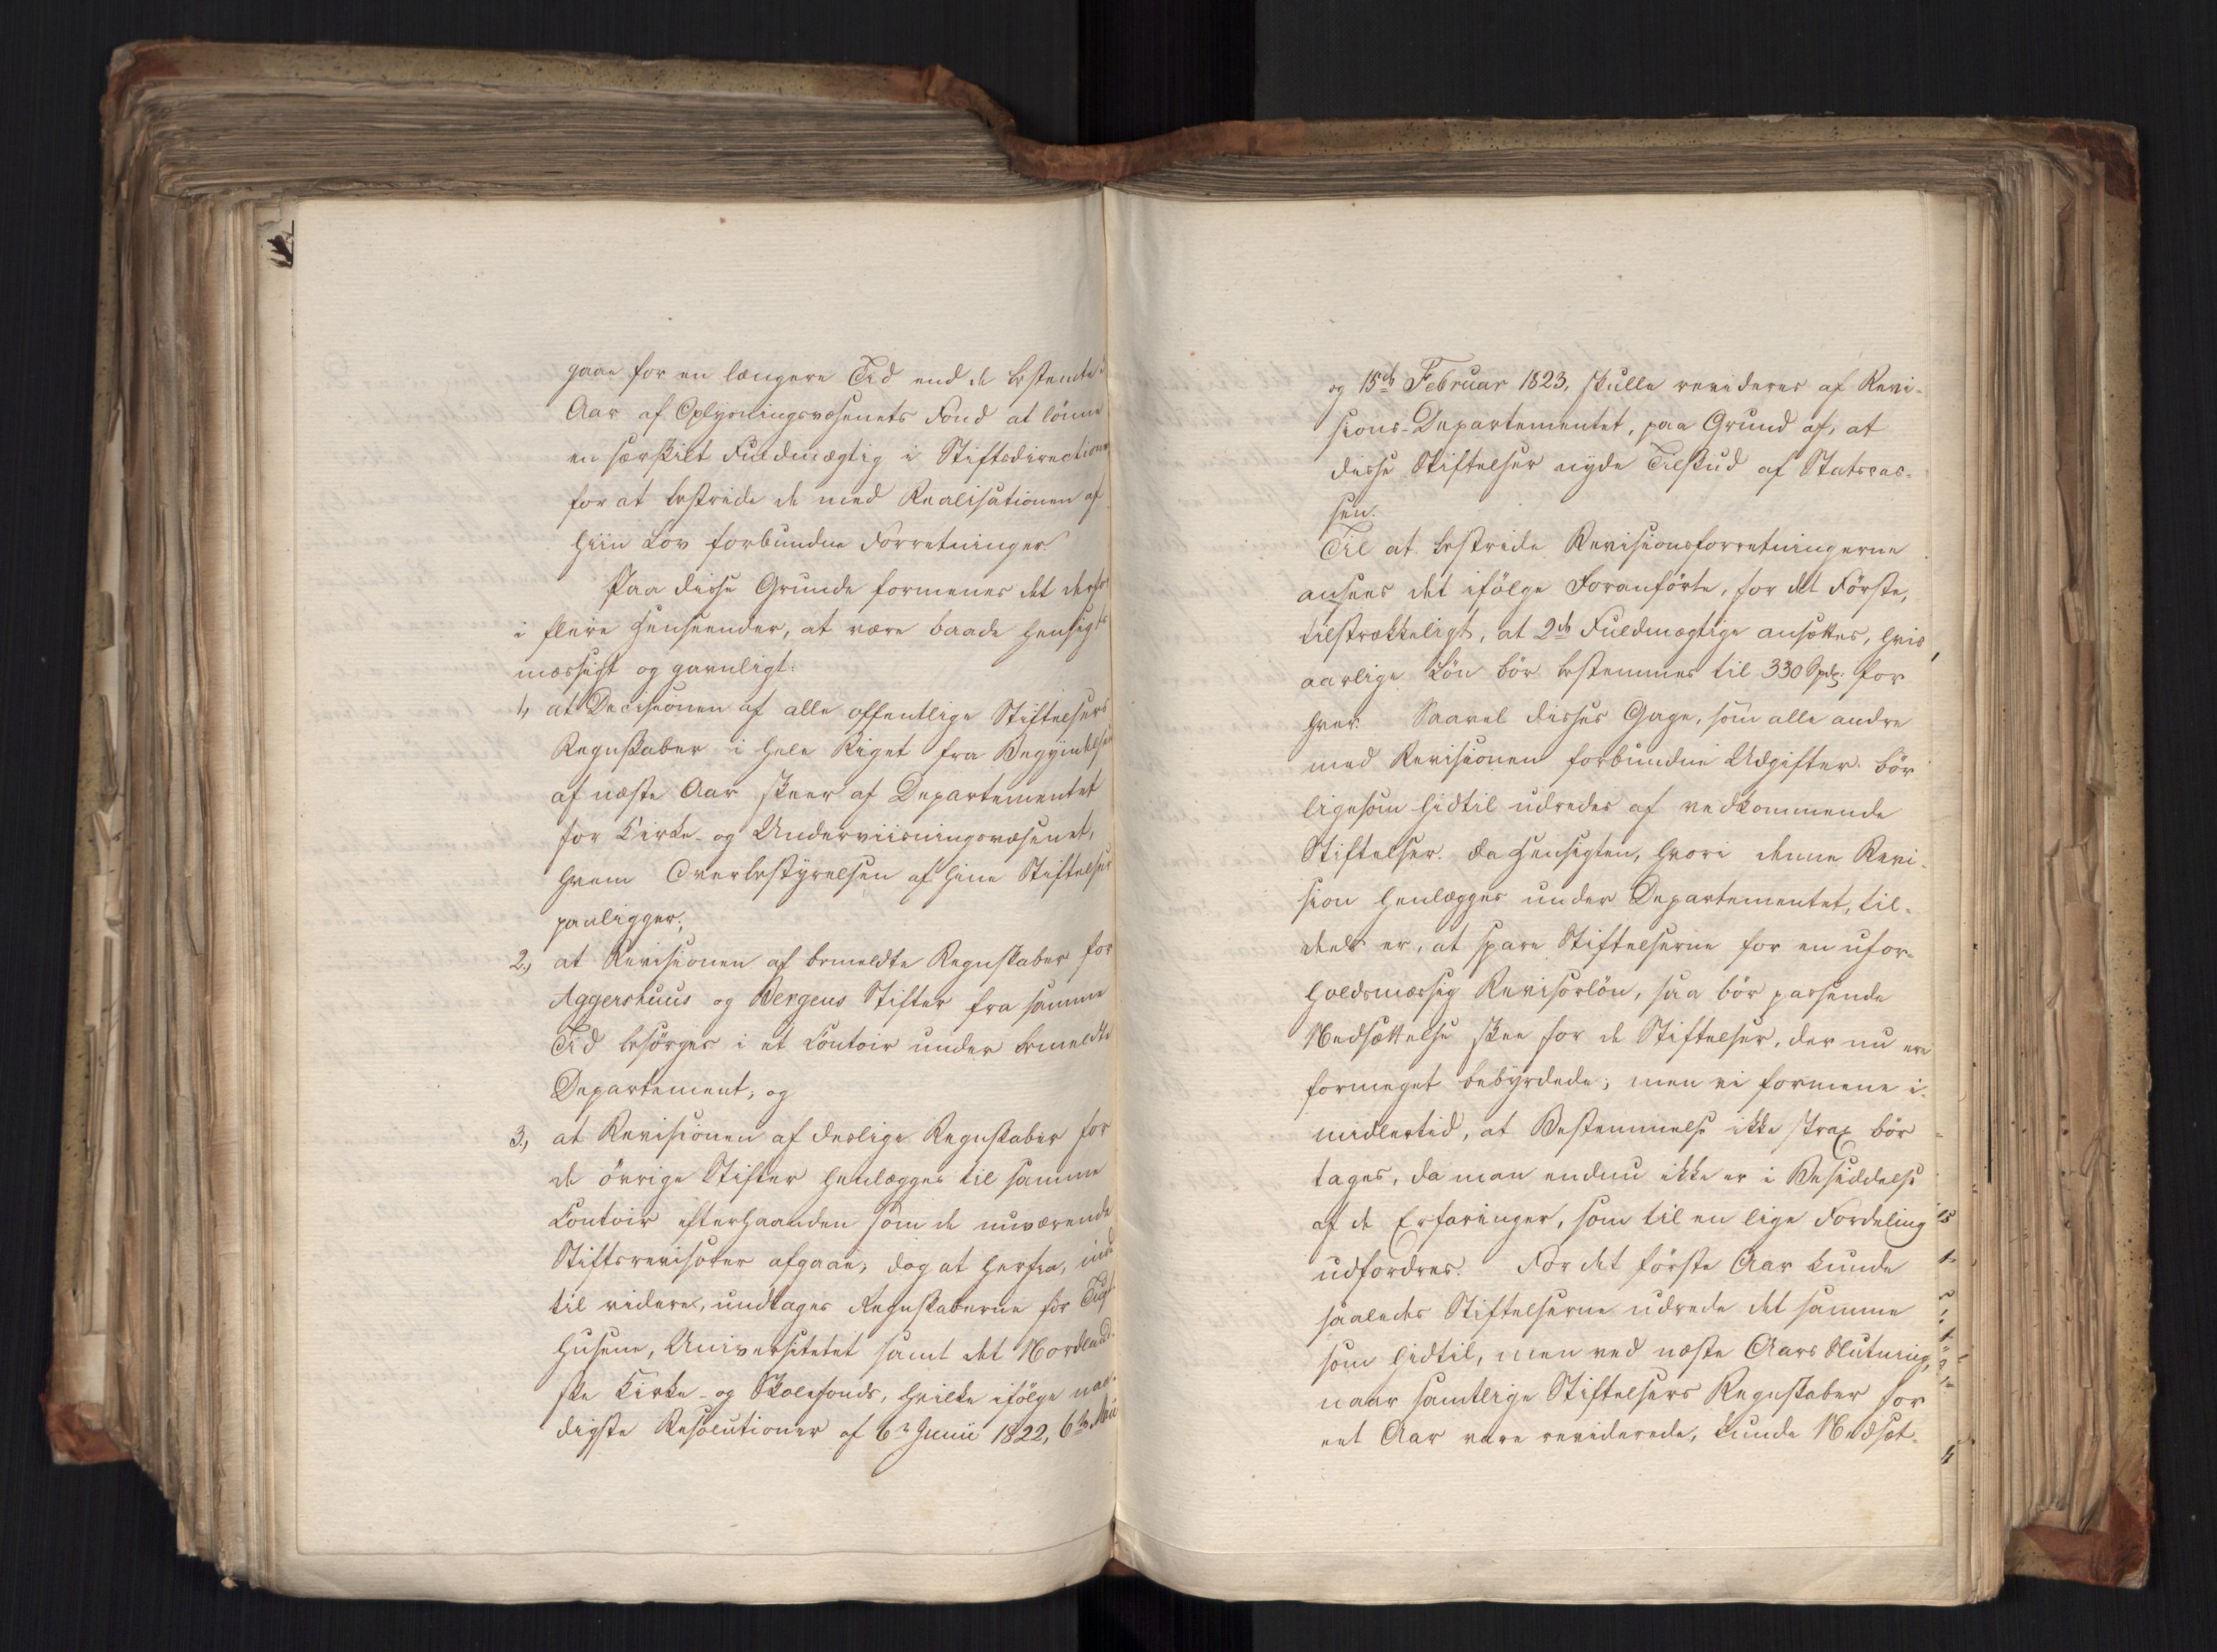 gaae for en længere Tid end de bestemte 3
Aar af Oplysningsvæsenets Fond at lønne
en særskilt Fuldmægtig i Stiftsdirectionen
for at bestride de med Realisationen af
hiin Lov forbundne Forretninger.
Paa disse Grunde formenes det derfor
i flere Henseender, at være baade hensigts
mæssigt og gavnligt:
1, at Decisionen af alle offentlige Stiftelsers
Regnskaber i hele Riget fra Begyndelsen
af næste Aar skeer af Departementet
for Kirke- og Underviisningsvæsenet,
hvem Overbestyrelsen af hine Stiftelser
paaligger;
2, at Revisionen af bemeldte Regnskaber for
Aggershuus og Bergens Stifter fra samme
Tid besørges i et Contoir under bemeldte
Departement, og
3, at Revisionen af deslige Regnskaber for
de øvrige Stifter henlægges til samme
Contoir efterhaanden som de nuværende
Stiftsrevisorer afgaae; dog at herfra, ind
til videre, undtages Regnskaberne for Tugt-
husene, Universitetet samt det Nordland-
ske Kirke- og Skolefonds, hvilke ifølge naa-
digste Resolutioner af 6te Junii 1822, 6te Mai
og 15de Februar 1823, skulle revideres af Revi-
sions-Departementet, paa Grund af, at
disse Stiftelser nyde Tilskud af Statscas-
sen.
Til at bestride Revisionsforretningerne
ansees det ifølge Foranførte, for det Første,
tilstrækkeligt, at 2de Fuldmægtige ansættes, hvis
aarlige Løn bør bestemmes til 330 Spd. for
hver. Saavel disses Gage, som alle andre
med Revisionen forbundne Udgifter bør
ligesom hidtil udredes af vedkommende
Stiftelser. Da Hensigten, hvori denne Revi-
sion henlægges under Departementet, til-
deels er, at spare Stiftelserne for en ufor-
holdsmæssig Revisorløn, saa bør passende
Nedsættelse skee for de Stiftelser, der nu ere
formeget bebyrdede; men vi formene i-
midlertid, at Bestemmelse ikke strax bør
tages, da man endnu ikke er i Besiddelse
af de Erfaringer, som til en lige Fordeling
udfordres. For det første Aar kunde
saaledes Stiftelserne udrede det samme
som hidtil, men ved næste Aars Slutning,
naar samtlige Stiftelsers Regnskaber for
eet Aar vare reviderede, kunde Nedsæt-